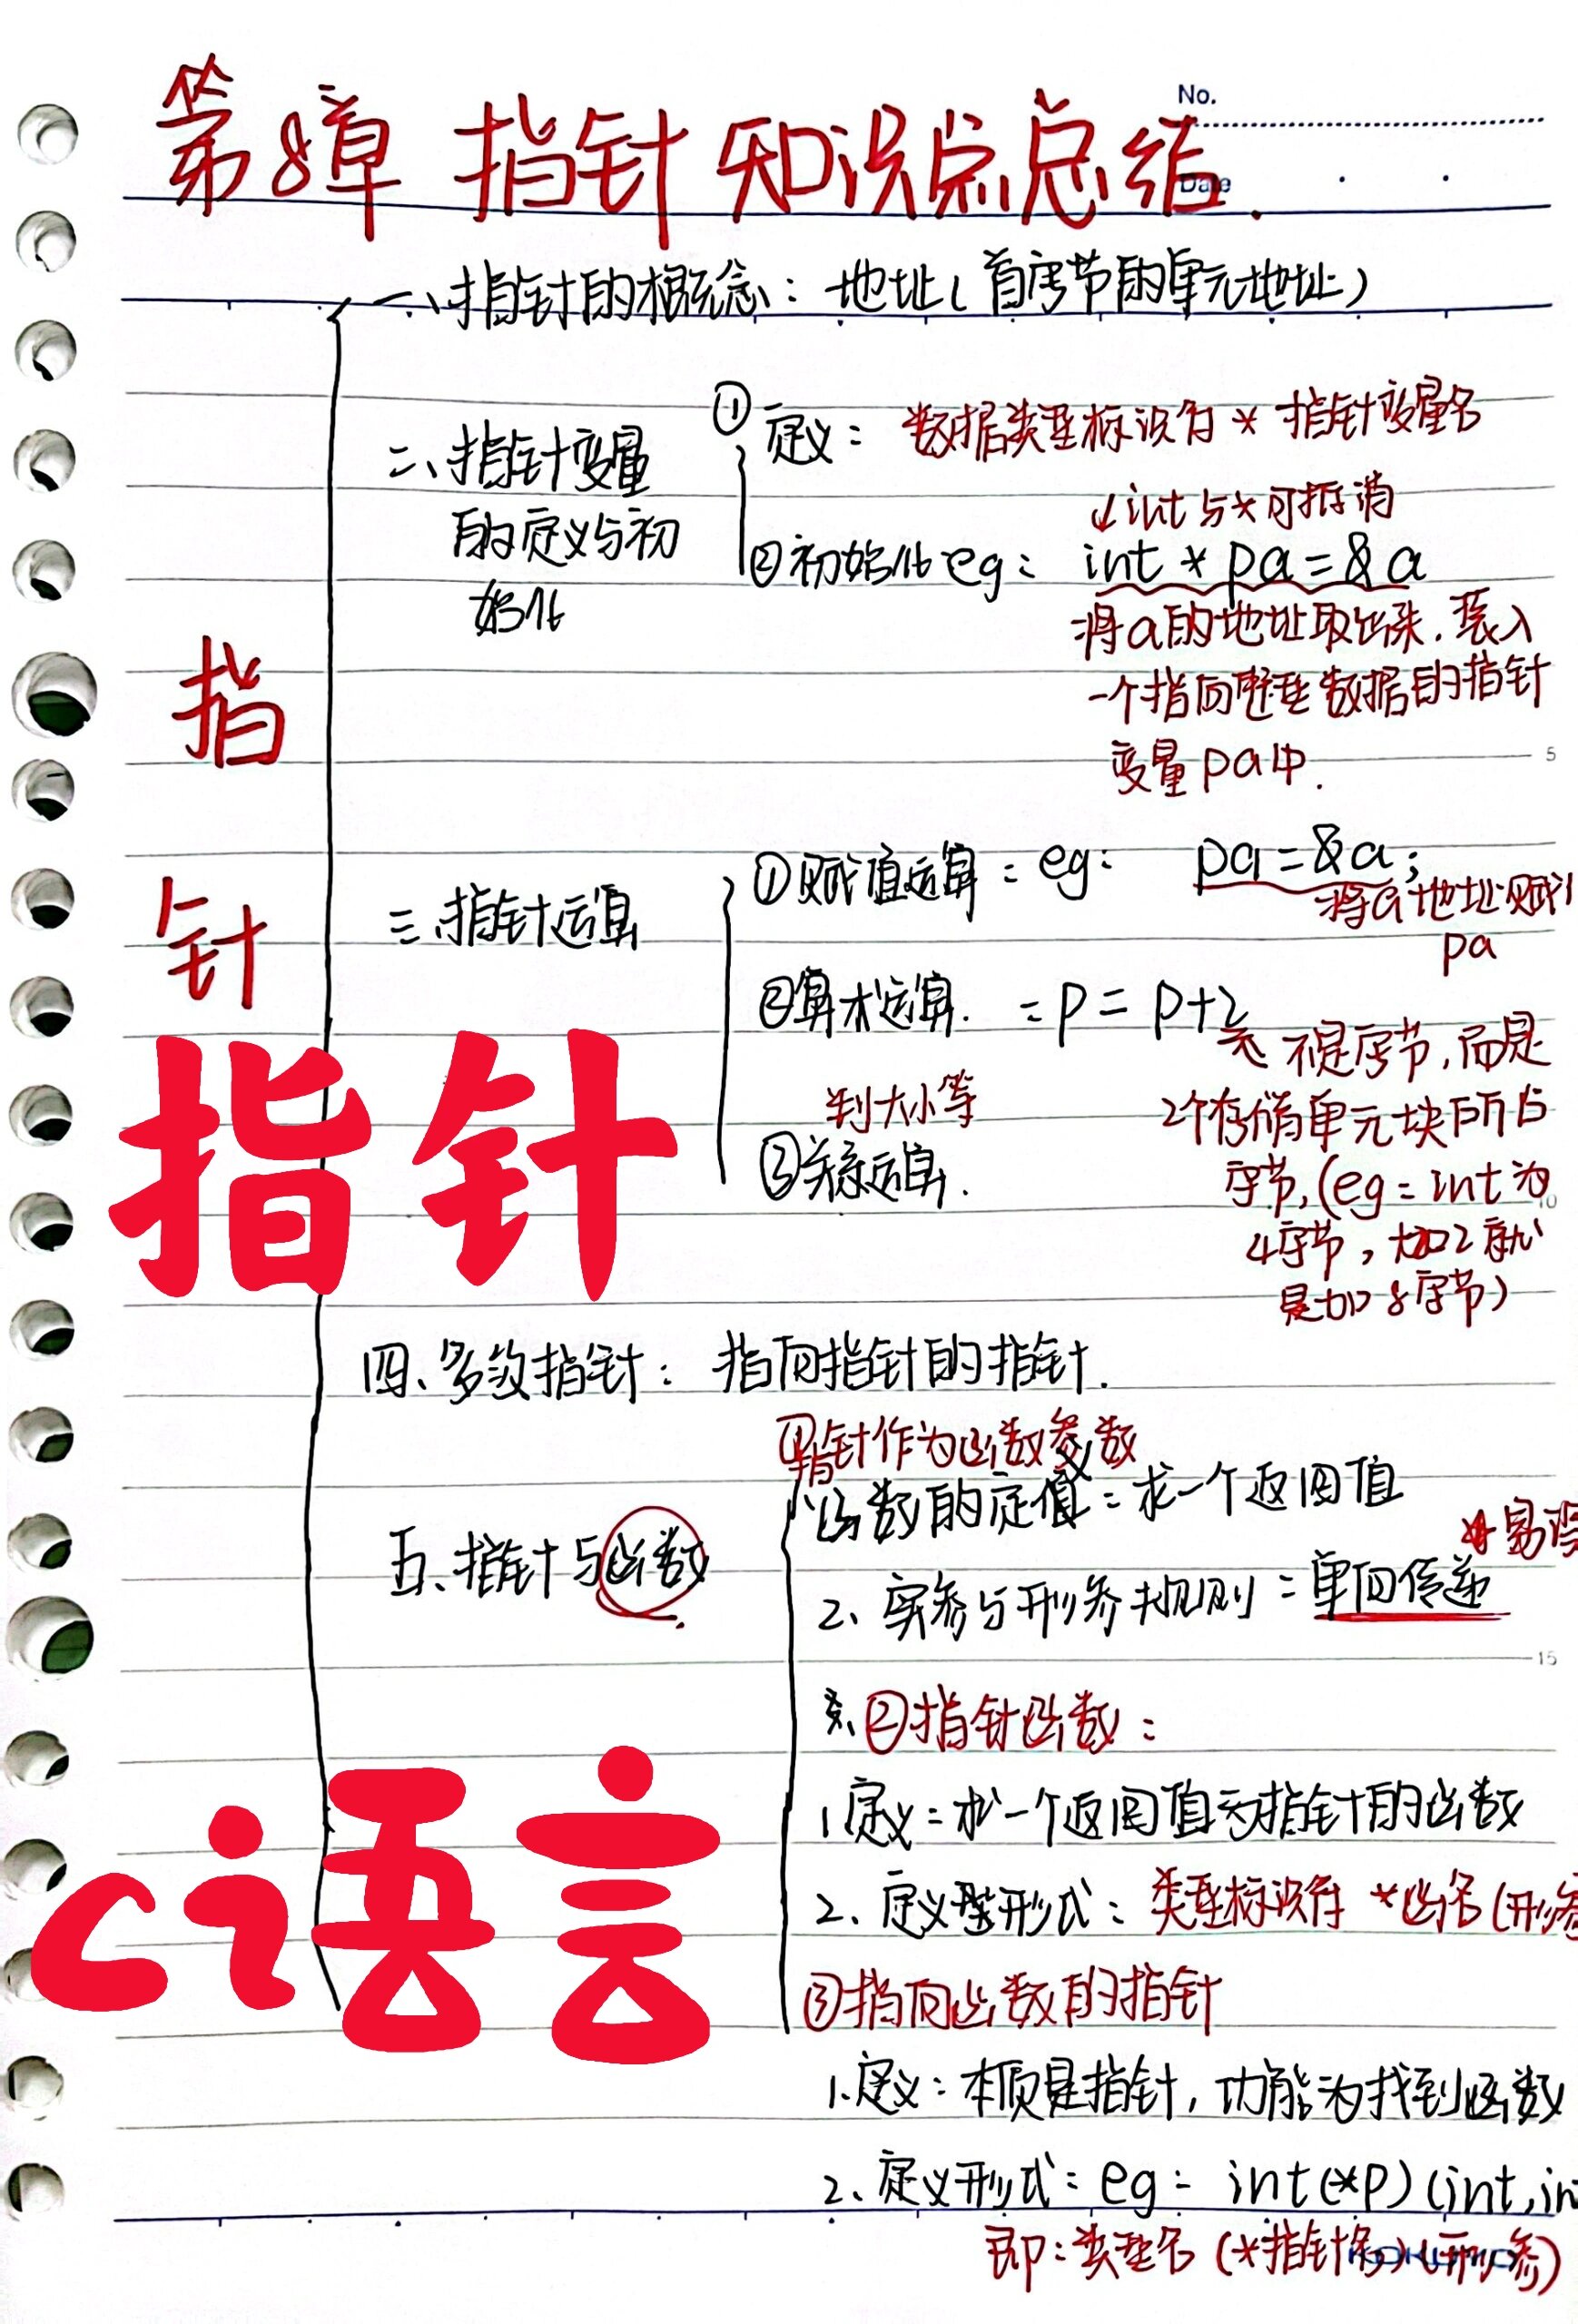 No.
Date
第8章 指针知识点总结.
一、指针的概念：地址(首字节的单元地址)
二、指针变量
的定义与初
始化
① 定义：数据类型标识符 * 指针变量名
↓int与*可抵消
②初始化eg: int * pa=&a
将a的地址取出来.装入
一个指向整型数据的指针
变量pa中.
5
指
针
三.指针运算
①赋值运算：eg: pa=&a;
将a地址赋
pa
②算术运算. : p = p+2
不是字节,而是
2个存储单元块所占
字节,(eg: int为
4字节，加2就
是加8字节)
10
判大小等
③关系运算.
指针
四、多级指针：指向指针的指针.
五、指针与函数
①指针作为函数参数
函数的定义：求一个返回值
*易
2、实参与形参规则：单向传递
15
②指针函数：
1.定义：求一个返回值为指针的函数
2、定义形式：类型标识符 *函名(形参
③指向函数的指针
ci语言
1.定义：本质是指针，功能为找到函数
2.定义形式：eg: int(*p)(int,in
即：类型名 (*指针名)(形参)
KOKUYO